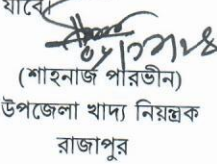 যাবে।
(শাহনাজ পারভীন)
উপজেলা খাদ্য নিয়ন্ত্রক
রাজাপুর